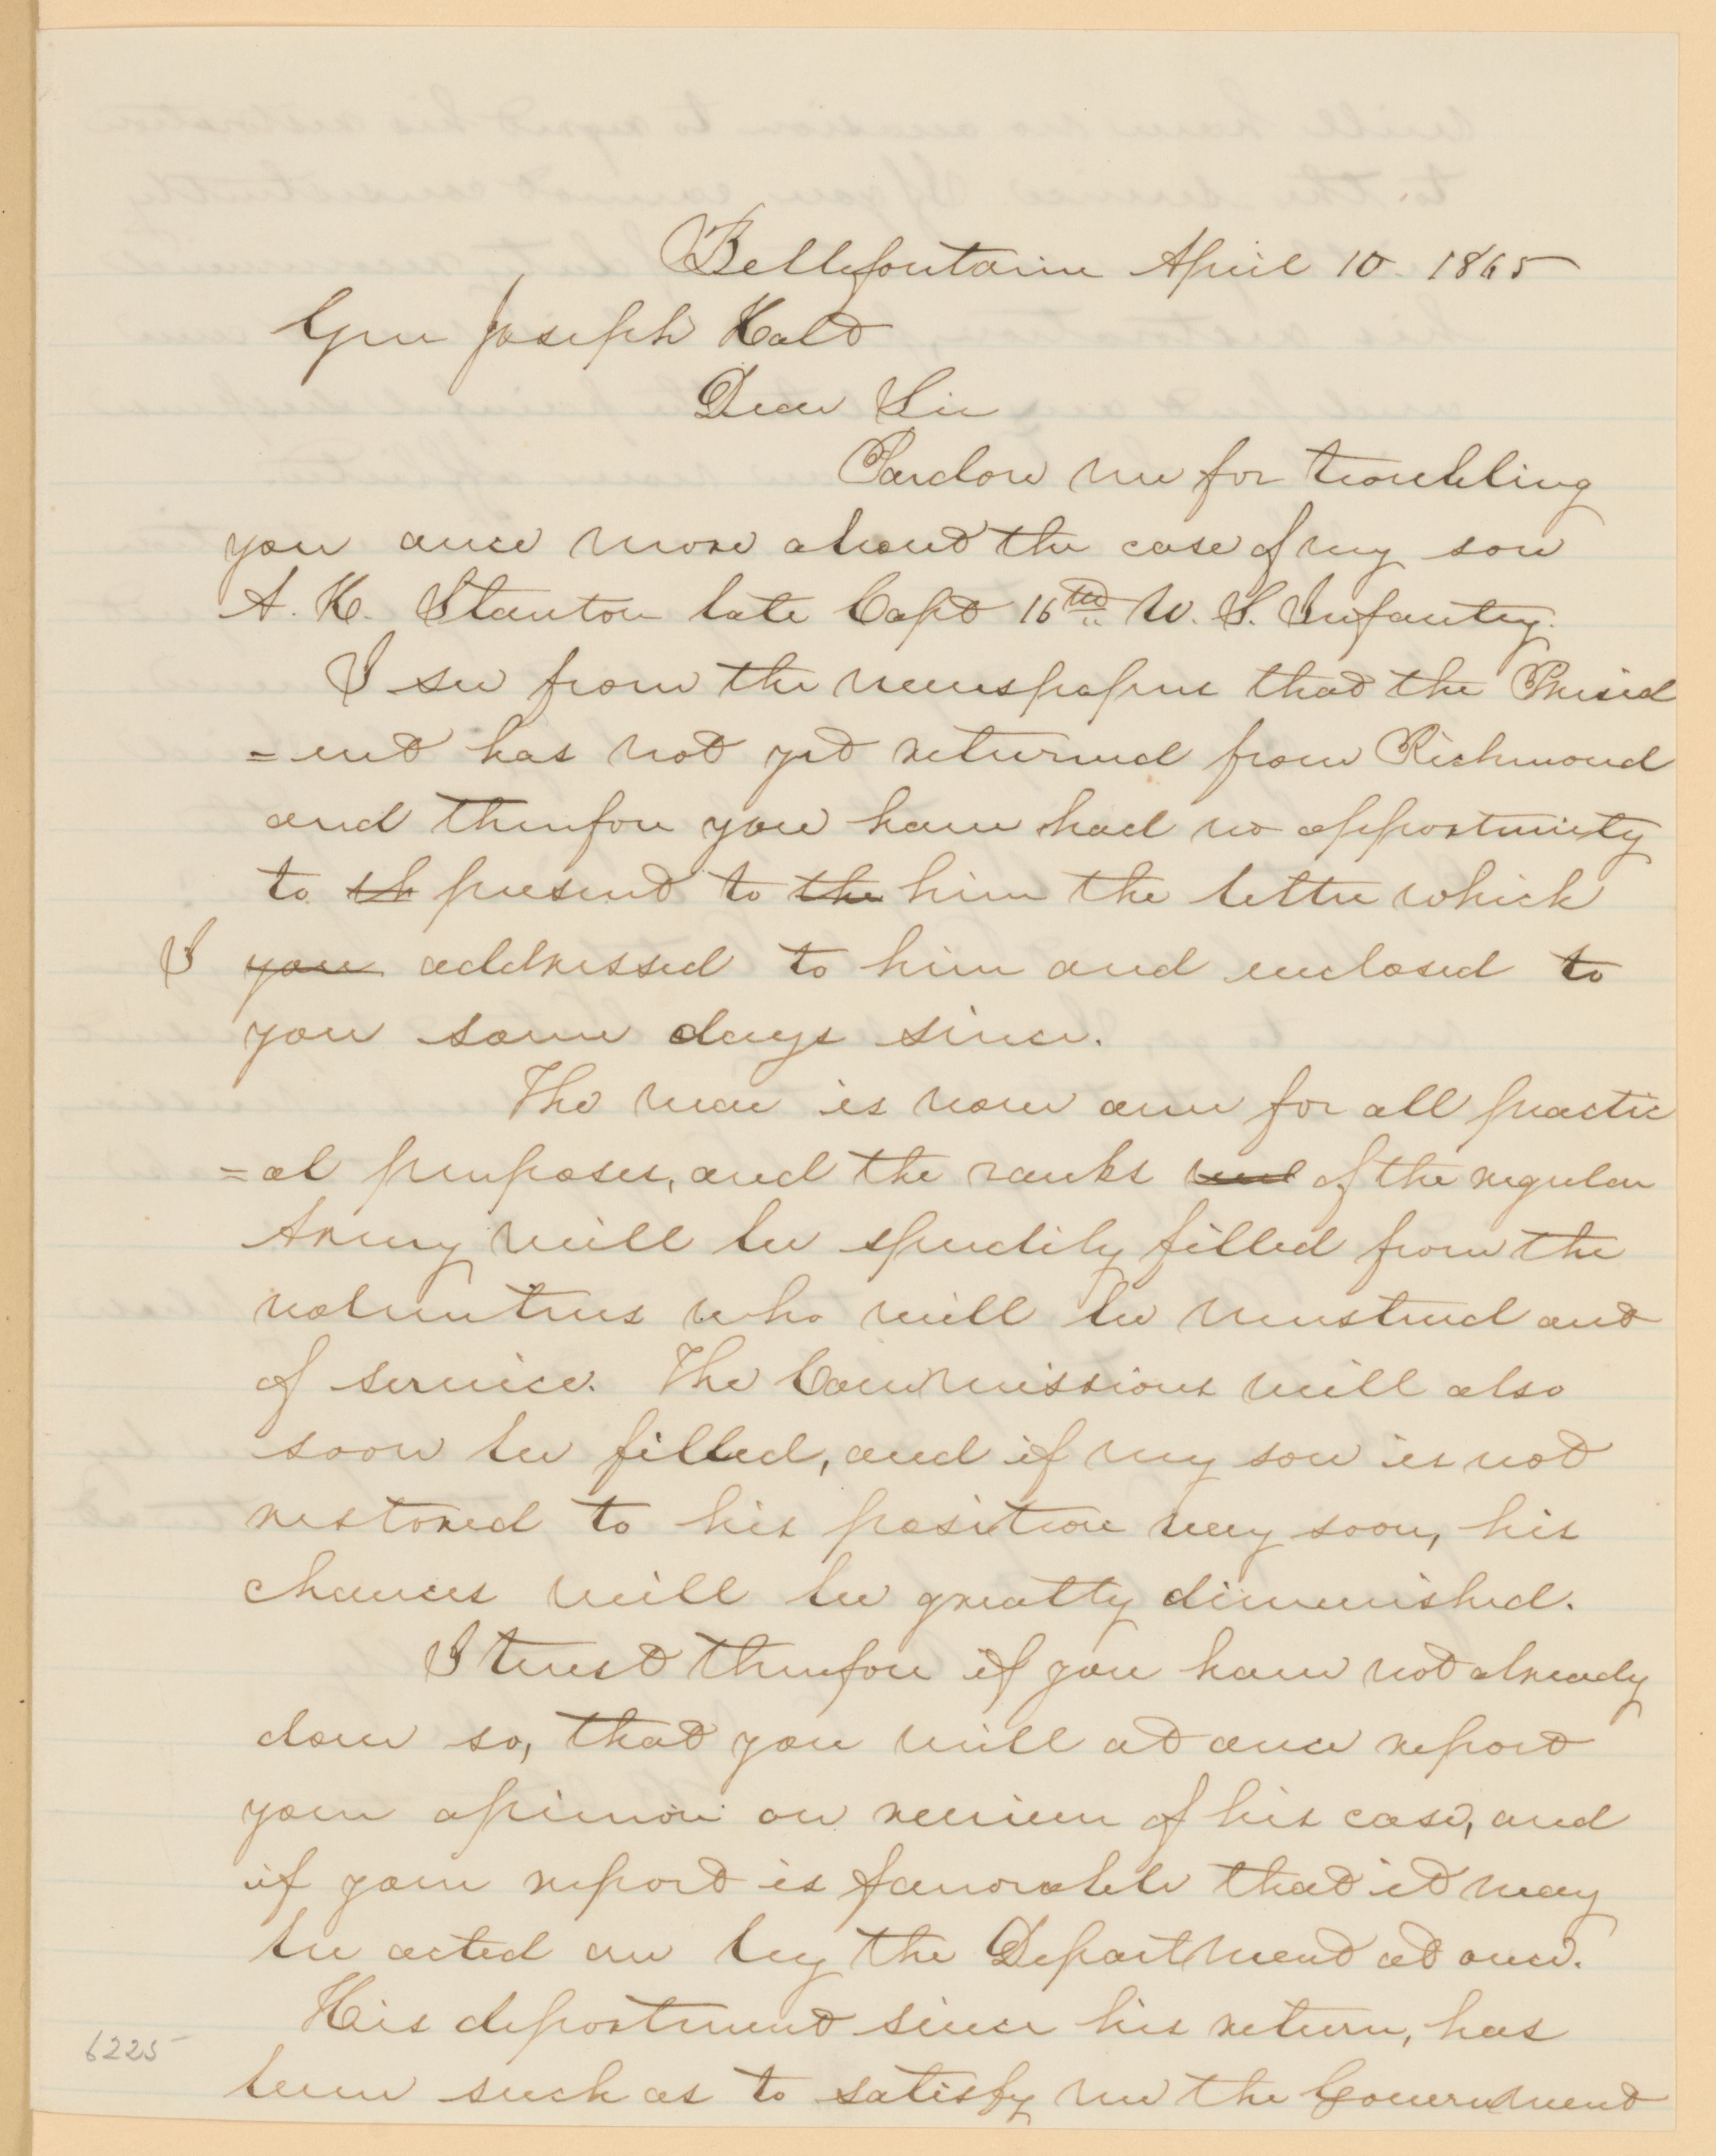 Bellefontaine April 10. 1865
Gen Joseph Holt
Dear Sir
Pardon me for troubling
you once more about the case of my son
A. H. Stanton late Capt 16th U. S. Infantry.
I see from the newspapers that the Presid
=ent has not yet returned from Richmond
and therefore you have had no opportunity
to sh present to the him the letter which
I you addressed to him and enclosed to
you some days since.
The war is now over for all practic
=al purposes, and the ranks of the regular
Army will be speedily filled from the
volunteers who will be mustered out
of service. The Commissions will also
soon be filled, and if my son is not
restored to his position very soon, his
chances will be greatly diminished.
I trust therefore if you have not already
done so, that you will at once report
your opinion on review of his case, and
if your report is favorable that it may
be acted on by the Department at once.
His deportment since his return, has
been such as to satisfy me the Government
6225